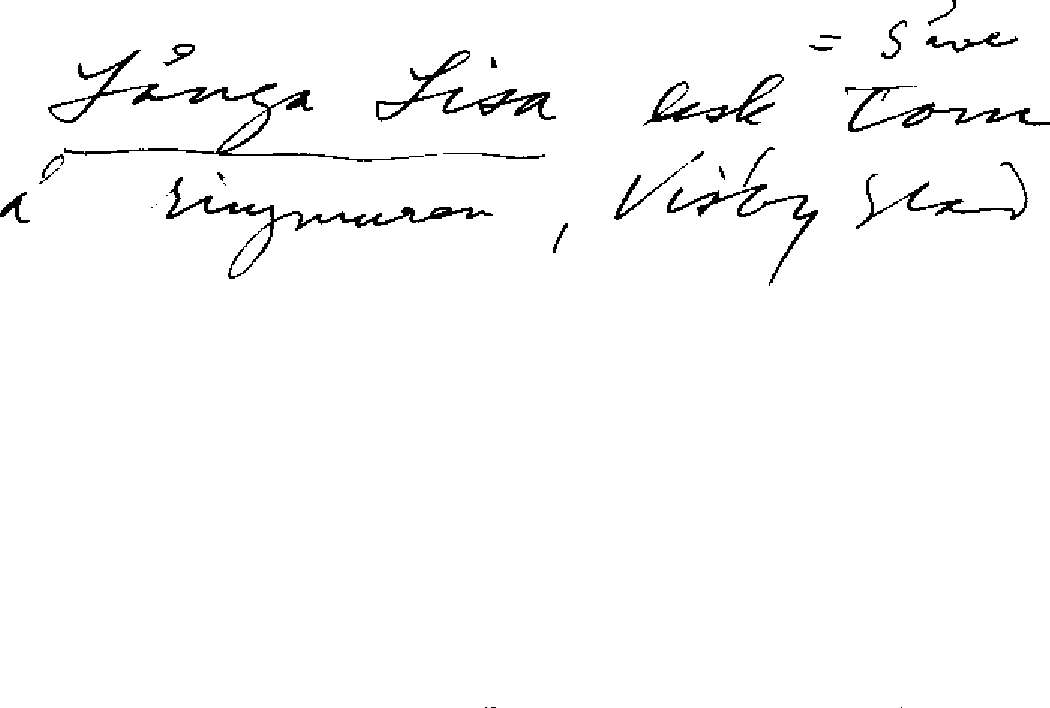 = Säve
Långa Lisa Torn
å ringmuren, Visby Stad